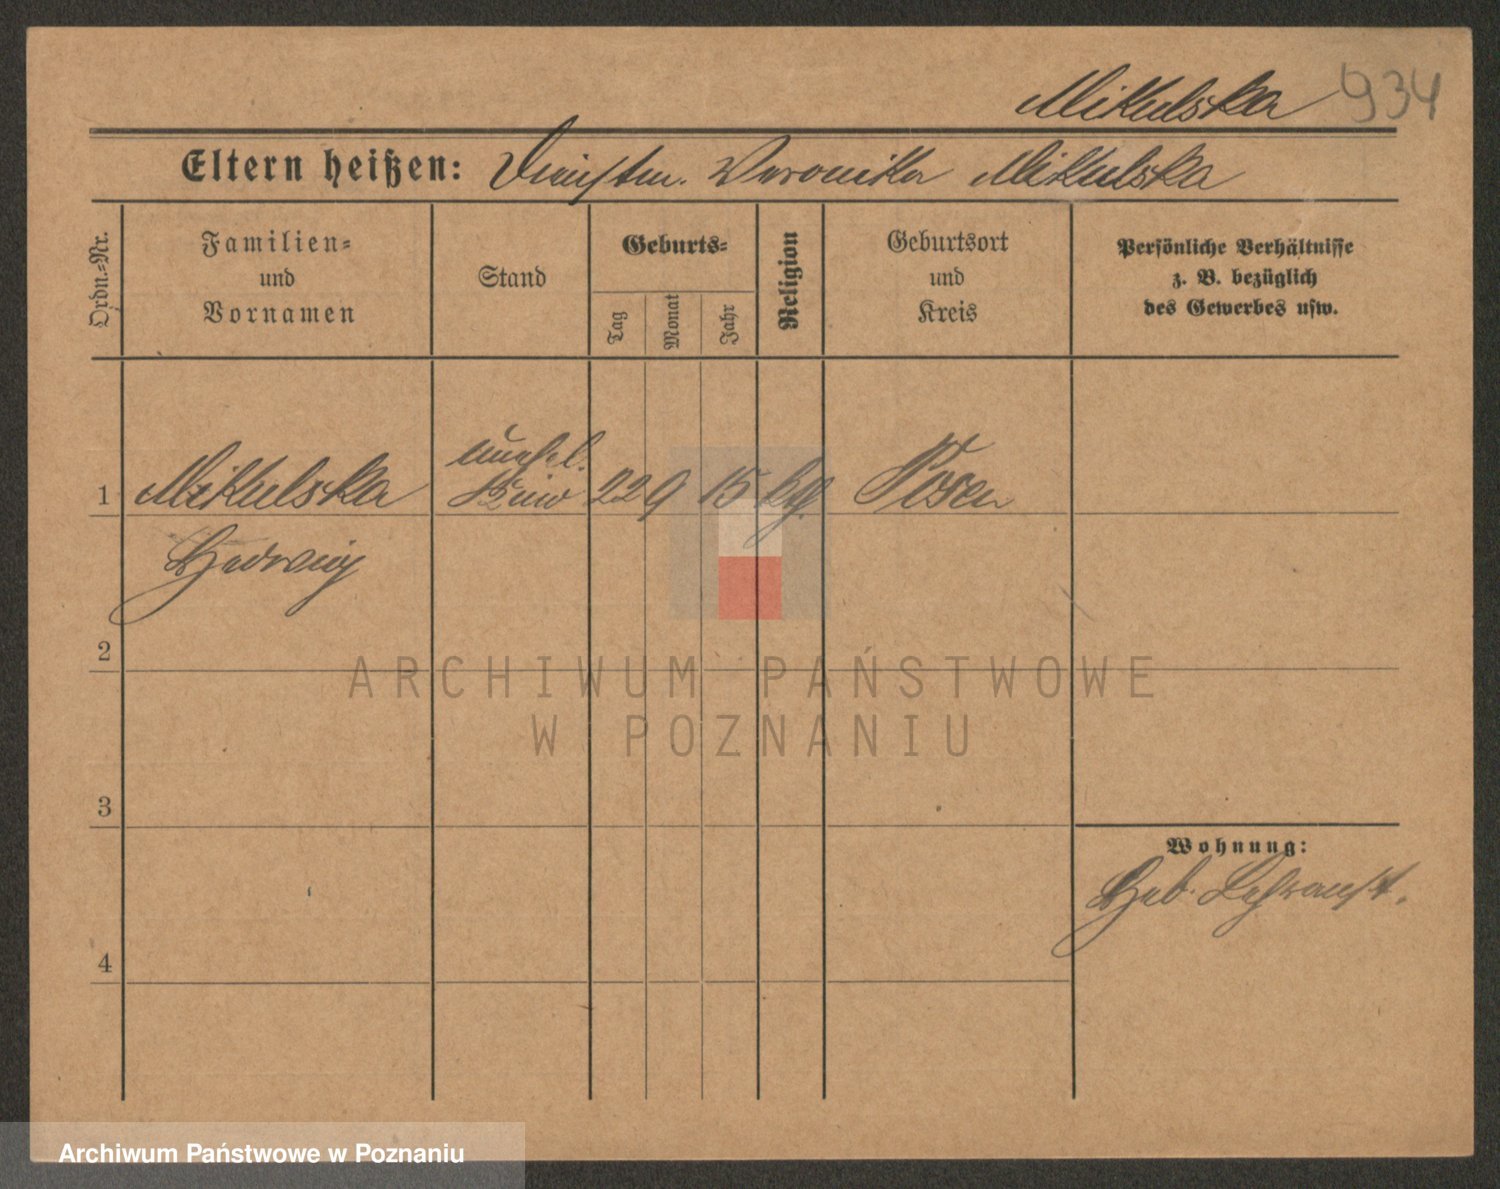 Mikulska 934
Eltern heißen: Dienstm. Veronika Mikulska
Ordn.-Nr.
Familien-
und
Vornamen
Stand
Geburts-
Tag
Monat
Jahr
Religion
Geburtsort
und
Kreis
Persönliche Verhältnisse
z. B. bezüglich
des Gewerbes usw.
unehel.
1 Mikulska Kind 22 9 15 kth. Posen
Hedwig
2
ARCHIWUM PAŃSTWOWE
W POZNANIU
3
Wohnung:
Heb. Lehranst.
4
Archiwum Państwowe w Poznaniu